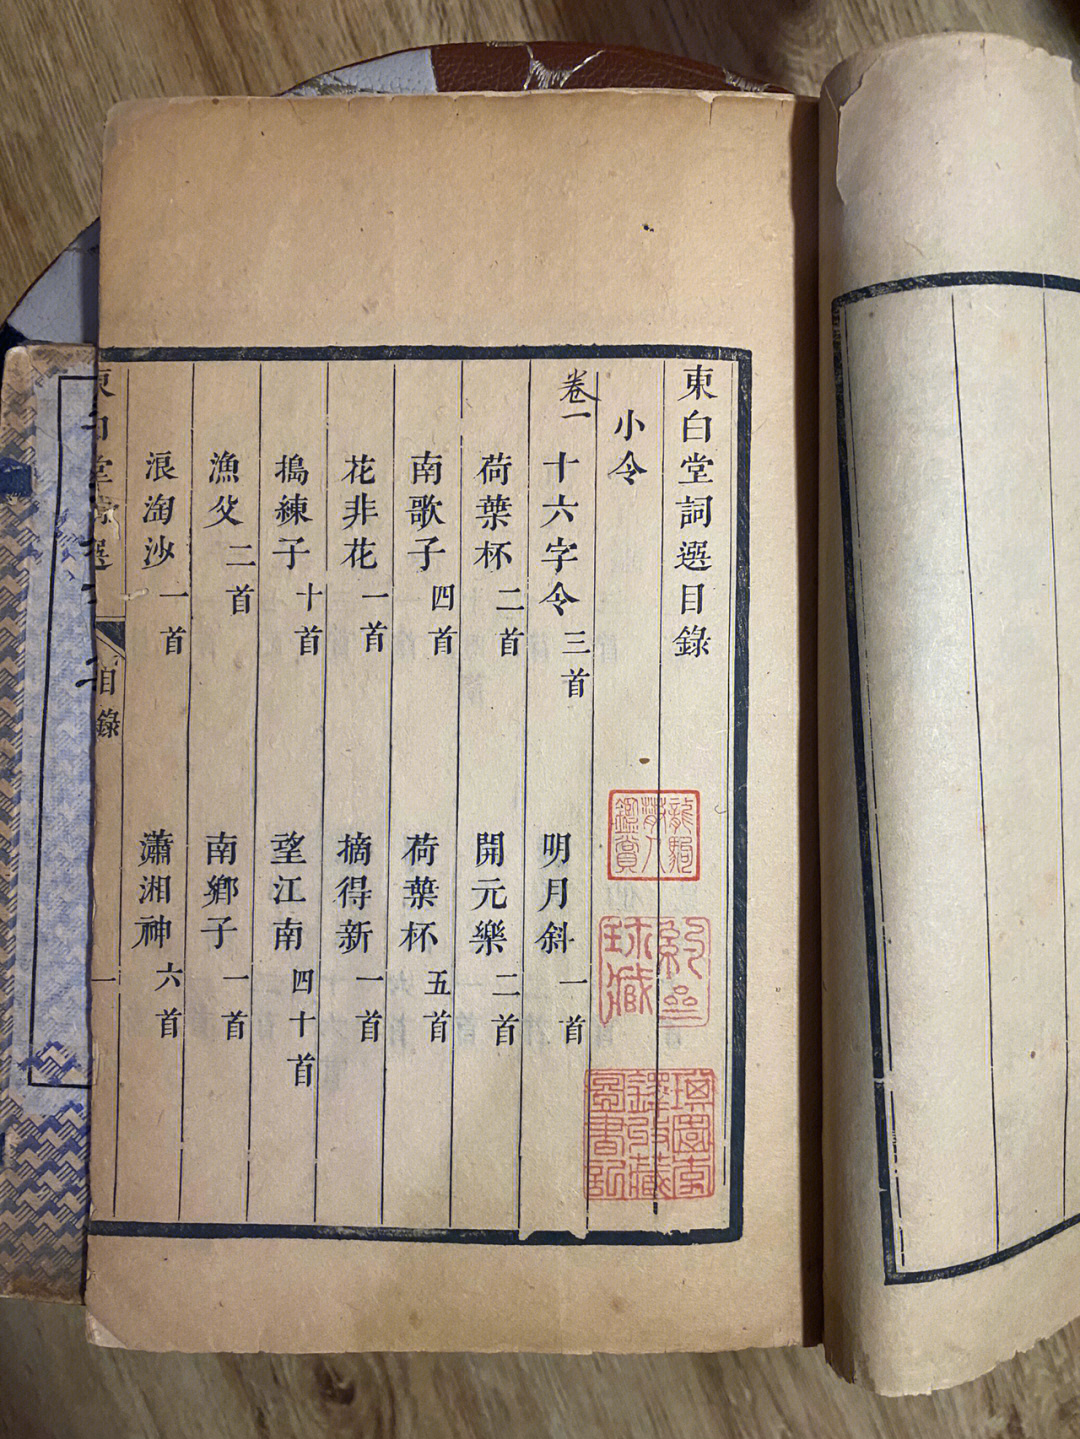 東白堂詞選目錄
小令
卷一
十六字令三首
明月斜一首
荷葉杯二首
開元樂二首
南歌子四首
荷葉杯五首
花非花一首
摘得新一首
搗練子十首
望江南四十首
漁父二首
南鄉子一首
浪淘沙一首
瀟湘神六首
目錄
一
鑑賞
珍藏
圖書記